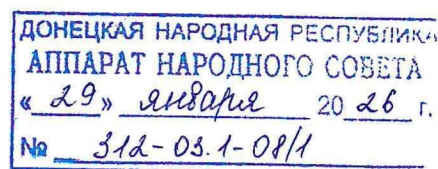 ДОНЕЦКАЯ НАРОДНАЯ РЕСПУБЛИКА
АППАРАТ НАРОДНОГО СОВЕТА
« 29 » января 20 26 г.
№ 312-03.1-08/1